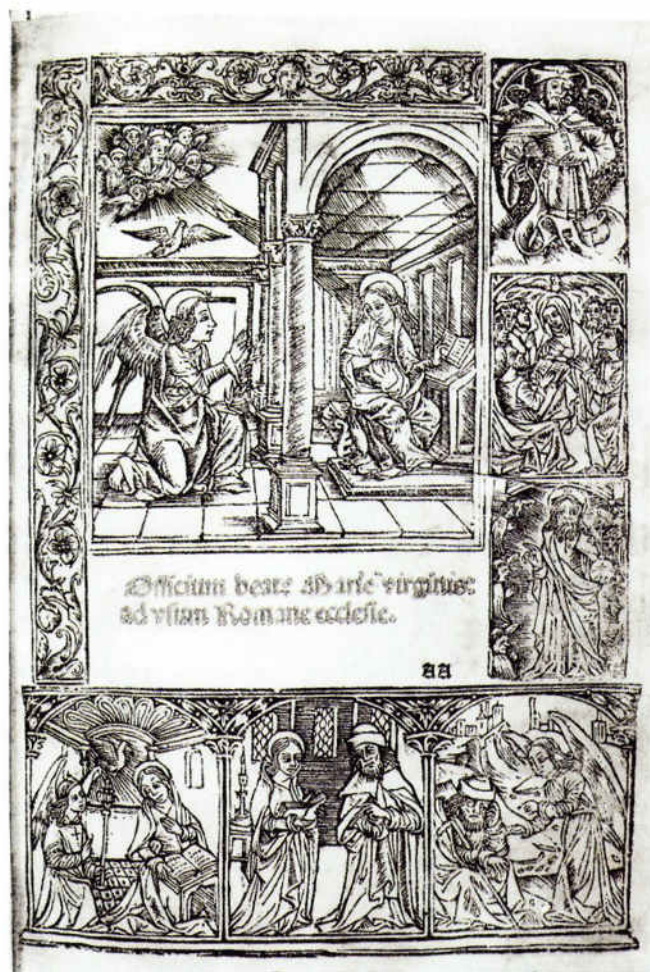 Officium beate Marie virginis:
ad vsum Romane ecclesie.
aa